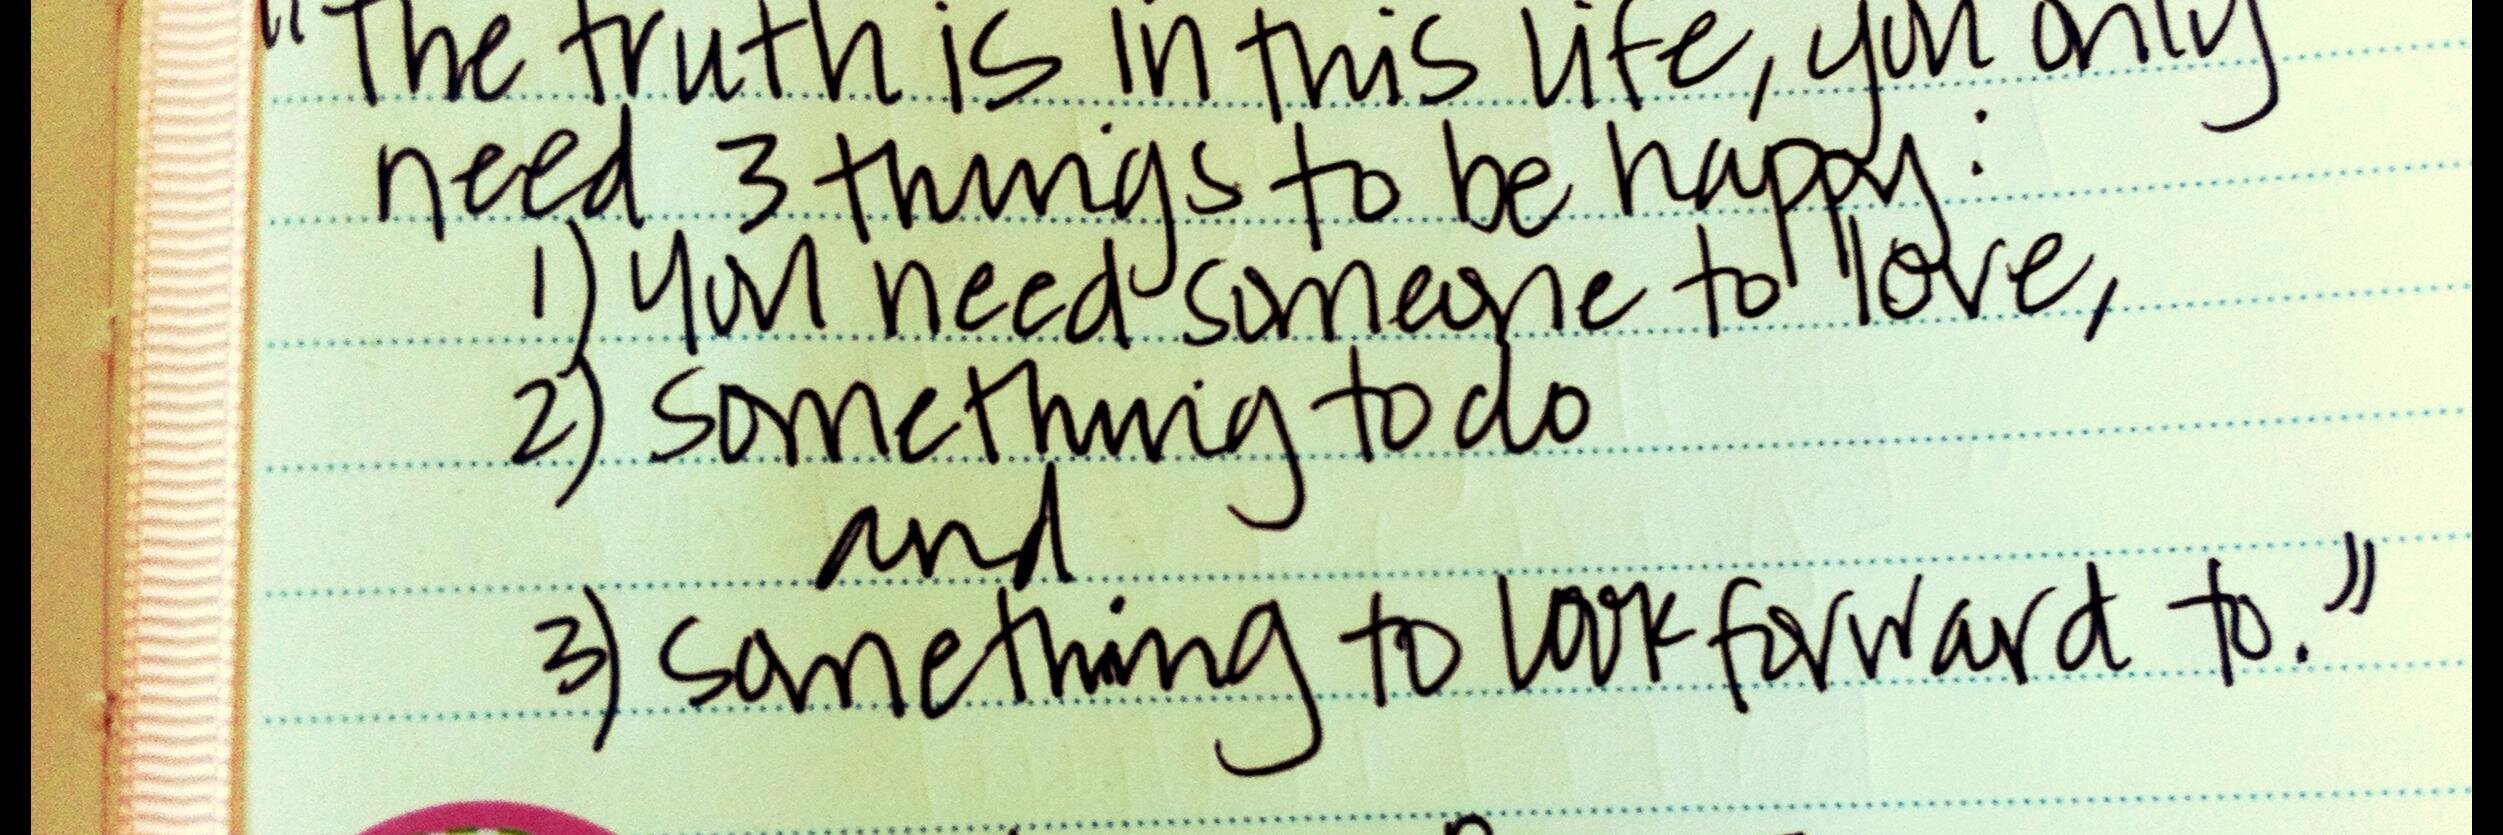 "The truth is in this life, you only
need 3 things to be happy:
1) you need someone to love,
2) something to do
and
3) something to look forward to."